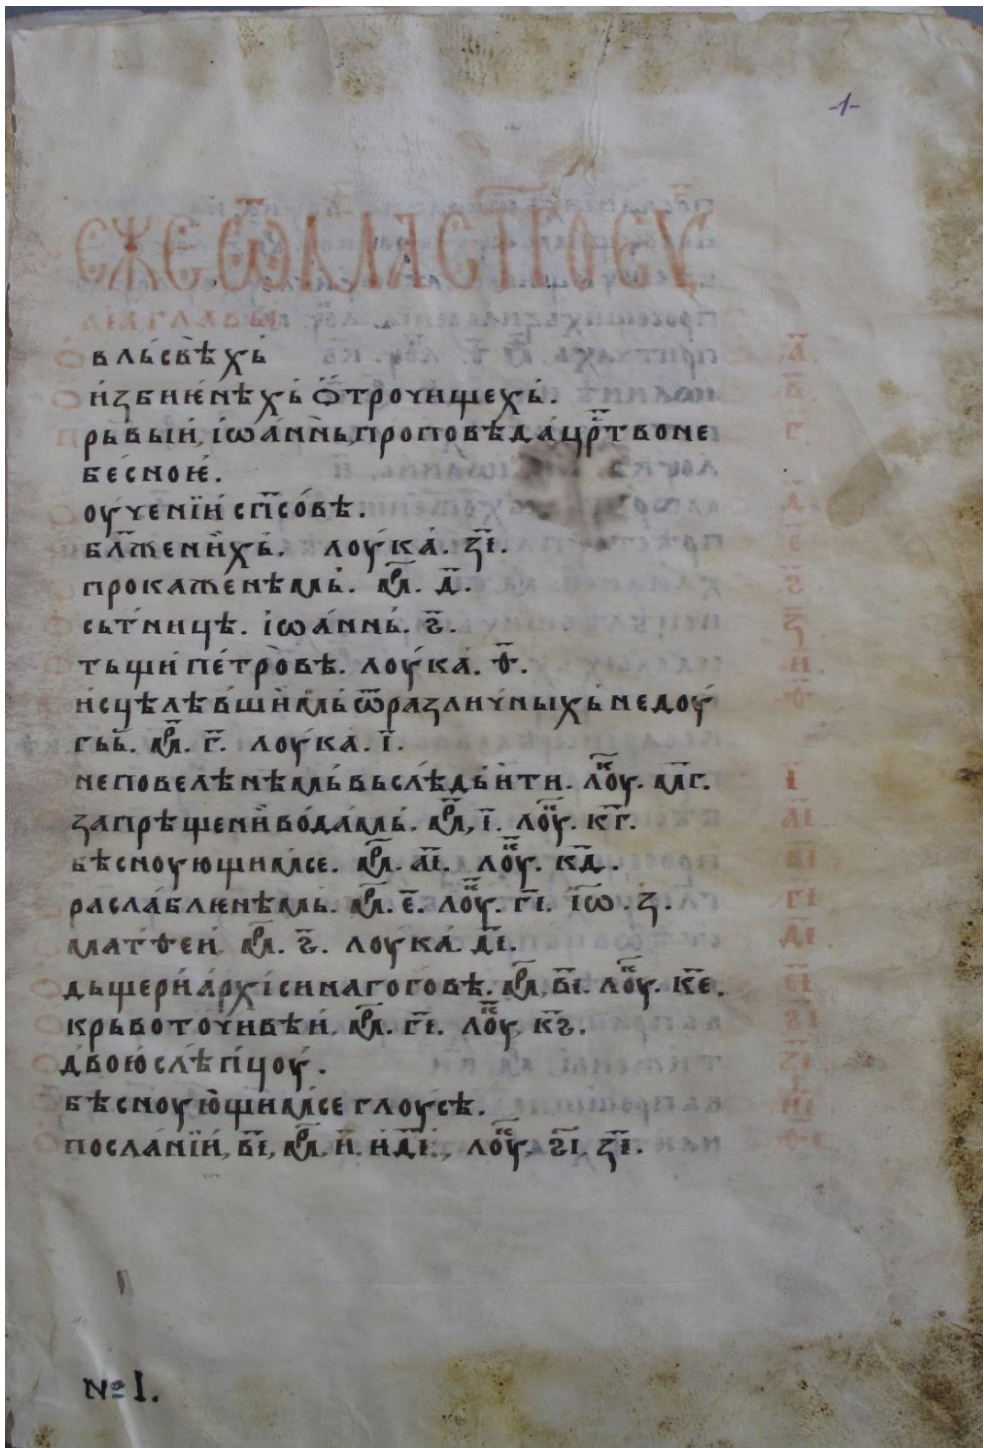 -1-
ЄЖЕ Ѿ МАТ҃ѲЕА СТ҃ГО ЕѴ
ЛІА ГЛАВЫ
Ѻ вльсвѣхь       а҃.
Ѻ и҆збиѥ́нѣхь ѻ҆трочищехь.       в҃.
рьвыи, і҆ѡа́ннь, проповѣда́ цр҃тво не       г҃.
бе́сноѥ.
Ѻ оу҆че́нїи сп҃со́вѣ.       д҃.
Ѻ бл҃же́нихь. лоу́ка. з҃і.       е҃.
Ѻ прокаже́нѣмь. мр҃. д҃.       ѕ҃.
Ѻ сьт́ницѣ. і҆ѡа́ннь. ѕ҃.       з҃.
Ѻ тьщи пе́тровѣ. лоука́. ѳ҃.       и҃.
Ѻ исцѣлѣ́вшимь ѿ разли́чныхь недоу́       ѳ҃.
гьь. мр҃. г҃. лоука́. і҃.
Ѻ не повелѣ́нѣмь вьслѣ́дь и҆ти. лоу҃к. мг҃.       і҃.
Ѻ запрѣще́ни во́дамь. мр҃, і҃. лоу҃к. кг҃.       а҃і.
Ѻ бѣсноующима́се. мр҃. а҃і. лоу҃к. кд҃.       в҃і.
Ѻ расла́блѥнѣмь. мр҃. е҃. лоу҃к. г҃і. і҆ѡ҃. з҃.       г҃і.
Ѻ мат́ѳеи. мр҃. ѕ҃. лоука́. д҃і.       д҃і.
Ѻ дьщери́ а҆рхїсинагого́вѣ. мр҃, в҃і. лоу҃к. ке҃.       е҃і.
Ѻ крьвото́чивѣи. мр҃. г҃і. лоу҃к, кѕ҃.       ѕ҃і.
Ѻ двою́ слѣ́пцоу.       з҃і.
Ѻ бѣсноую҆щимсе глоусѣ.       и҃і.
Ѻ посла́нїи, в҃і, мр҃, и҃. и҆ д҃і, лоу҃к, ѕ҃і, з҃і.       ѳ҃і.
№ I.